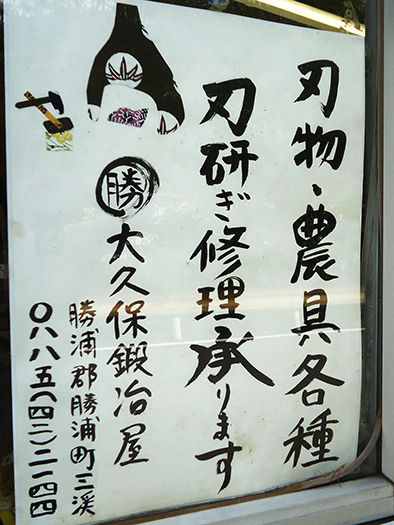 刃物・農具各種
刃研ぎ修理承ります
勝 大久保鍛冶屋
勝浦郡勝浦町三渓
〇八八五(四二)二一四四